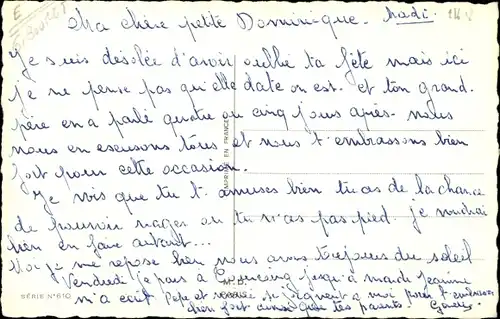 Ma chère petite Dominique. Mardi.
Je suis désolée d'avoir oublié ta fête mais ici
je ne pense pas qu'elle date on est. et ton grand.
père en a parlé quatre ou cinq jours après. nous
nous en escusons tous et nous t'embrassons bien
fort pour cette occasion.
Je vois que tu t'amuses bien tu as de la chance
de pouvoir nager ou tu n'as pas pied. je voudrai
bien en faire autant...
Moi je me repose bien nous avons toujours du soleil
Vendredi je pars à jusqu'à mardi
m'a écrit Pépé et se joignent a moi pour t'embrasser
bien fort ainsi que tes parents.
IMPRIMÉ EN FRANCE
M.D.
SÉRIE N° 610